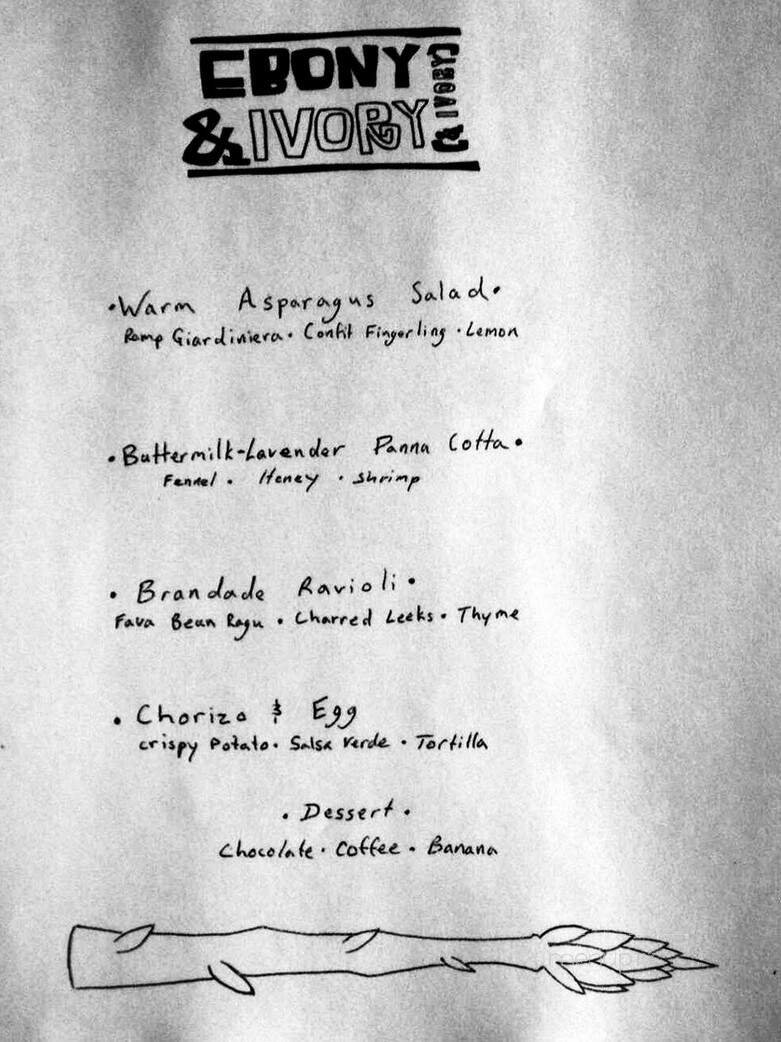 EBONY
& IVORY
& IVORY
•Warm Asparagus Salad•
Ramp Giardiniera • Confit Fingerling • Lemon
•Buttermilk-Lavender Panna Cotta•
Fennel • Honey • Shrimp
• Brandade Ravioli •
Fava Bean Ragu • Charred Leeks • Thyme
• Chorizo & Egg
crispy Potato • Salsa Verde • Tortilla
• Dessert •
Chocolate • Coffee • Banana